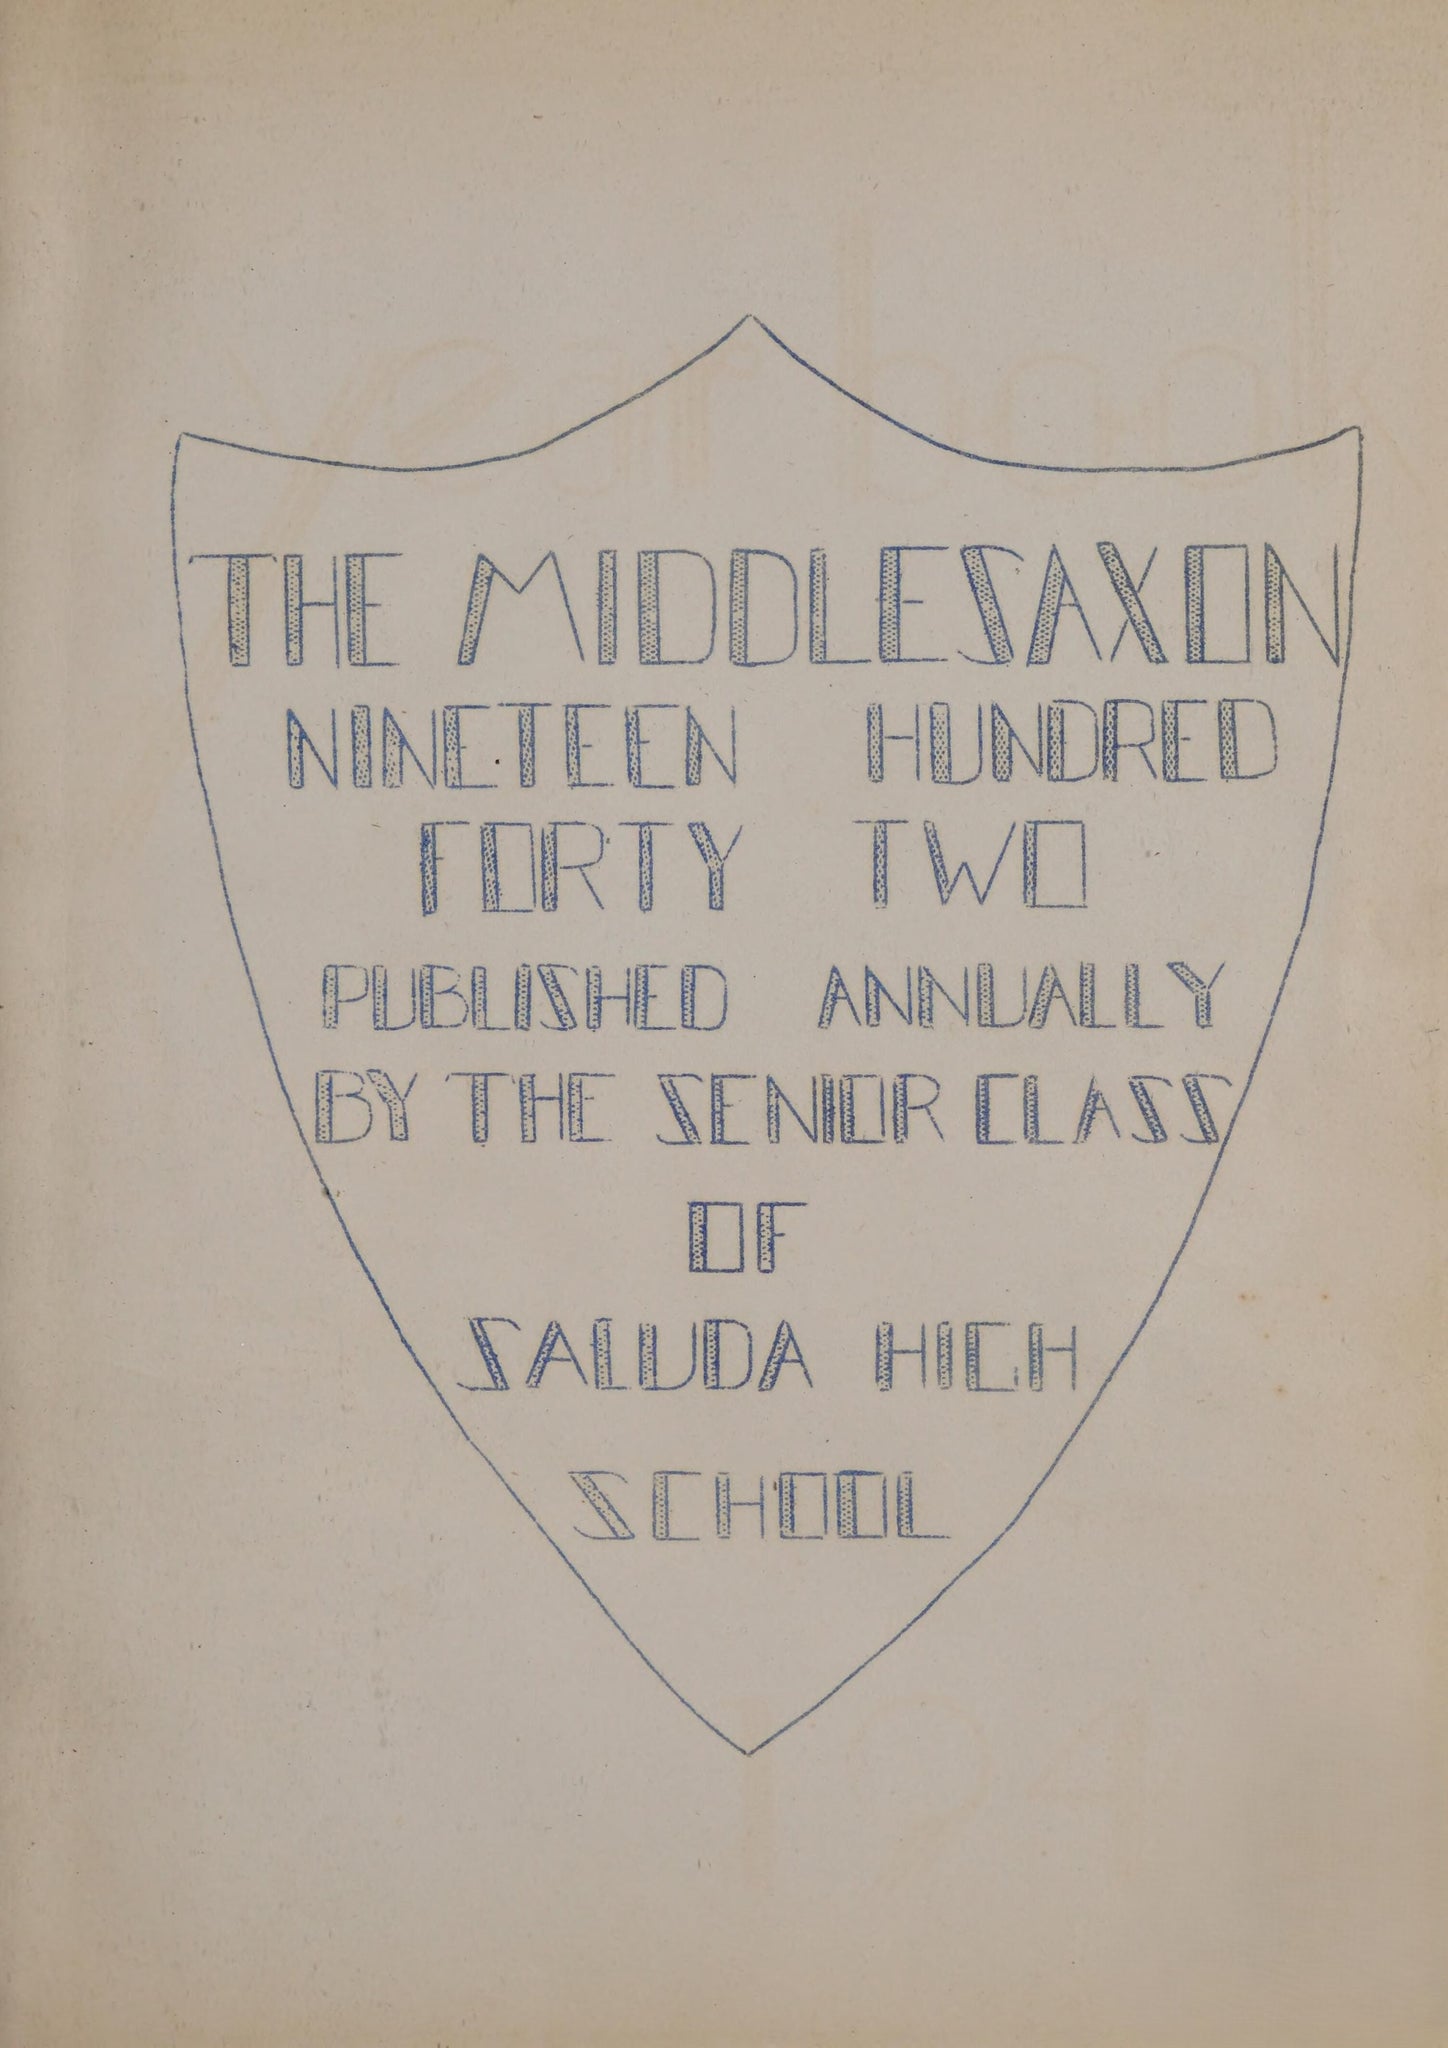 THE MIDDLESAXON
NINETEEN HUNDRED
FORTY TWO
PUBLISHED ANNUALLY
BY THE SENIOR CLASS
OF
SALUDA HIGH
SCHOOL